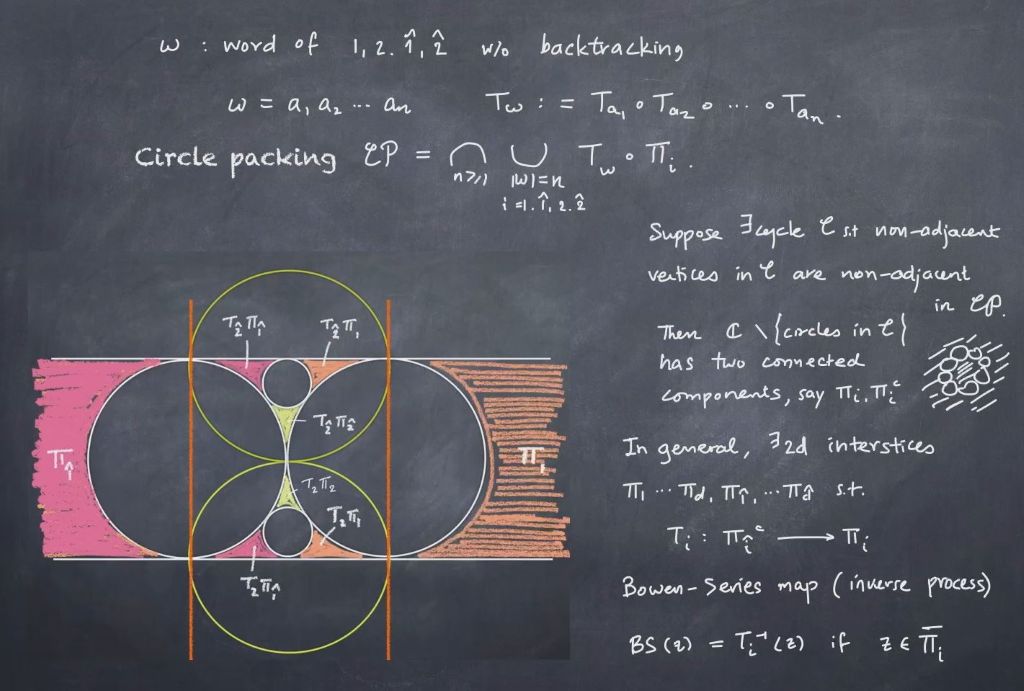 ω : word of 1, 2. 1̂, 2̂ w/o backtracking
ω = a₁ a₂ ··· aₙ T_ω : = T_{a₁} ∘ T_{a₂} ∘ ··· ∘ T_{aₙ} .
Circle packing 𝒞P = ⋂_{n≥1} ⋃_{|w|=n, i=1. 1̂, 2. 2̂} T_w ∘ Π_i .
Suppose ∃ cycle 𝒞 s.t non-adjacent
vertices in 𝒞 are non-adjacent
in 𝒞P.
Then ℂ \ {circles in 𝒞}
has two connected
components, say Π_i, Π_i^c
In general, ∃ 2d interstices
Π₁ ··· Π_d, Π_1̂, ··· Π_d̂ s.t.
T_i : Π_î^c ⟶ Π_i
Bowen-Series map (inverse process)
BS(z) = T_i⁻¹(z) if z ∈ Π̅_i
T_2̂ Π_1̂
T_2̂ Π₁
T_2̂ Π_2̂
Π_1̂
Π₁
T₂ Π₂
T₂ Π₁
T₂ Π_1̂